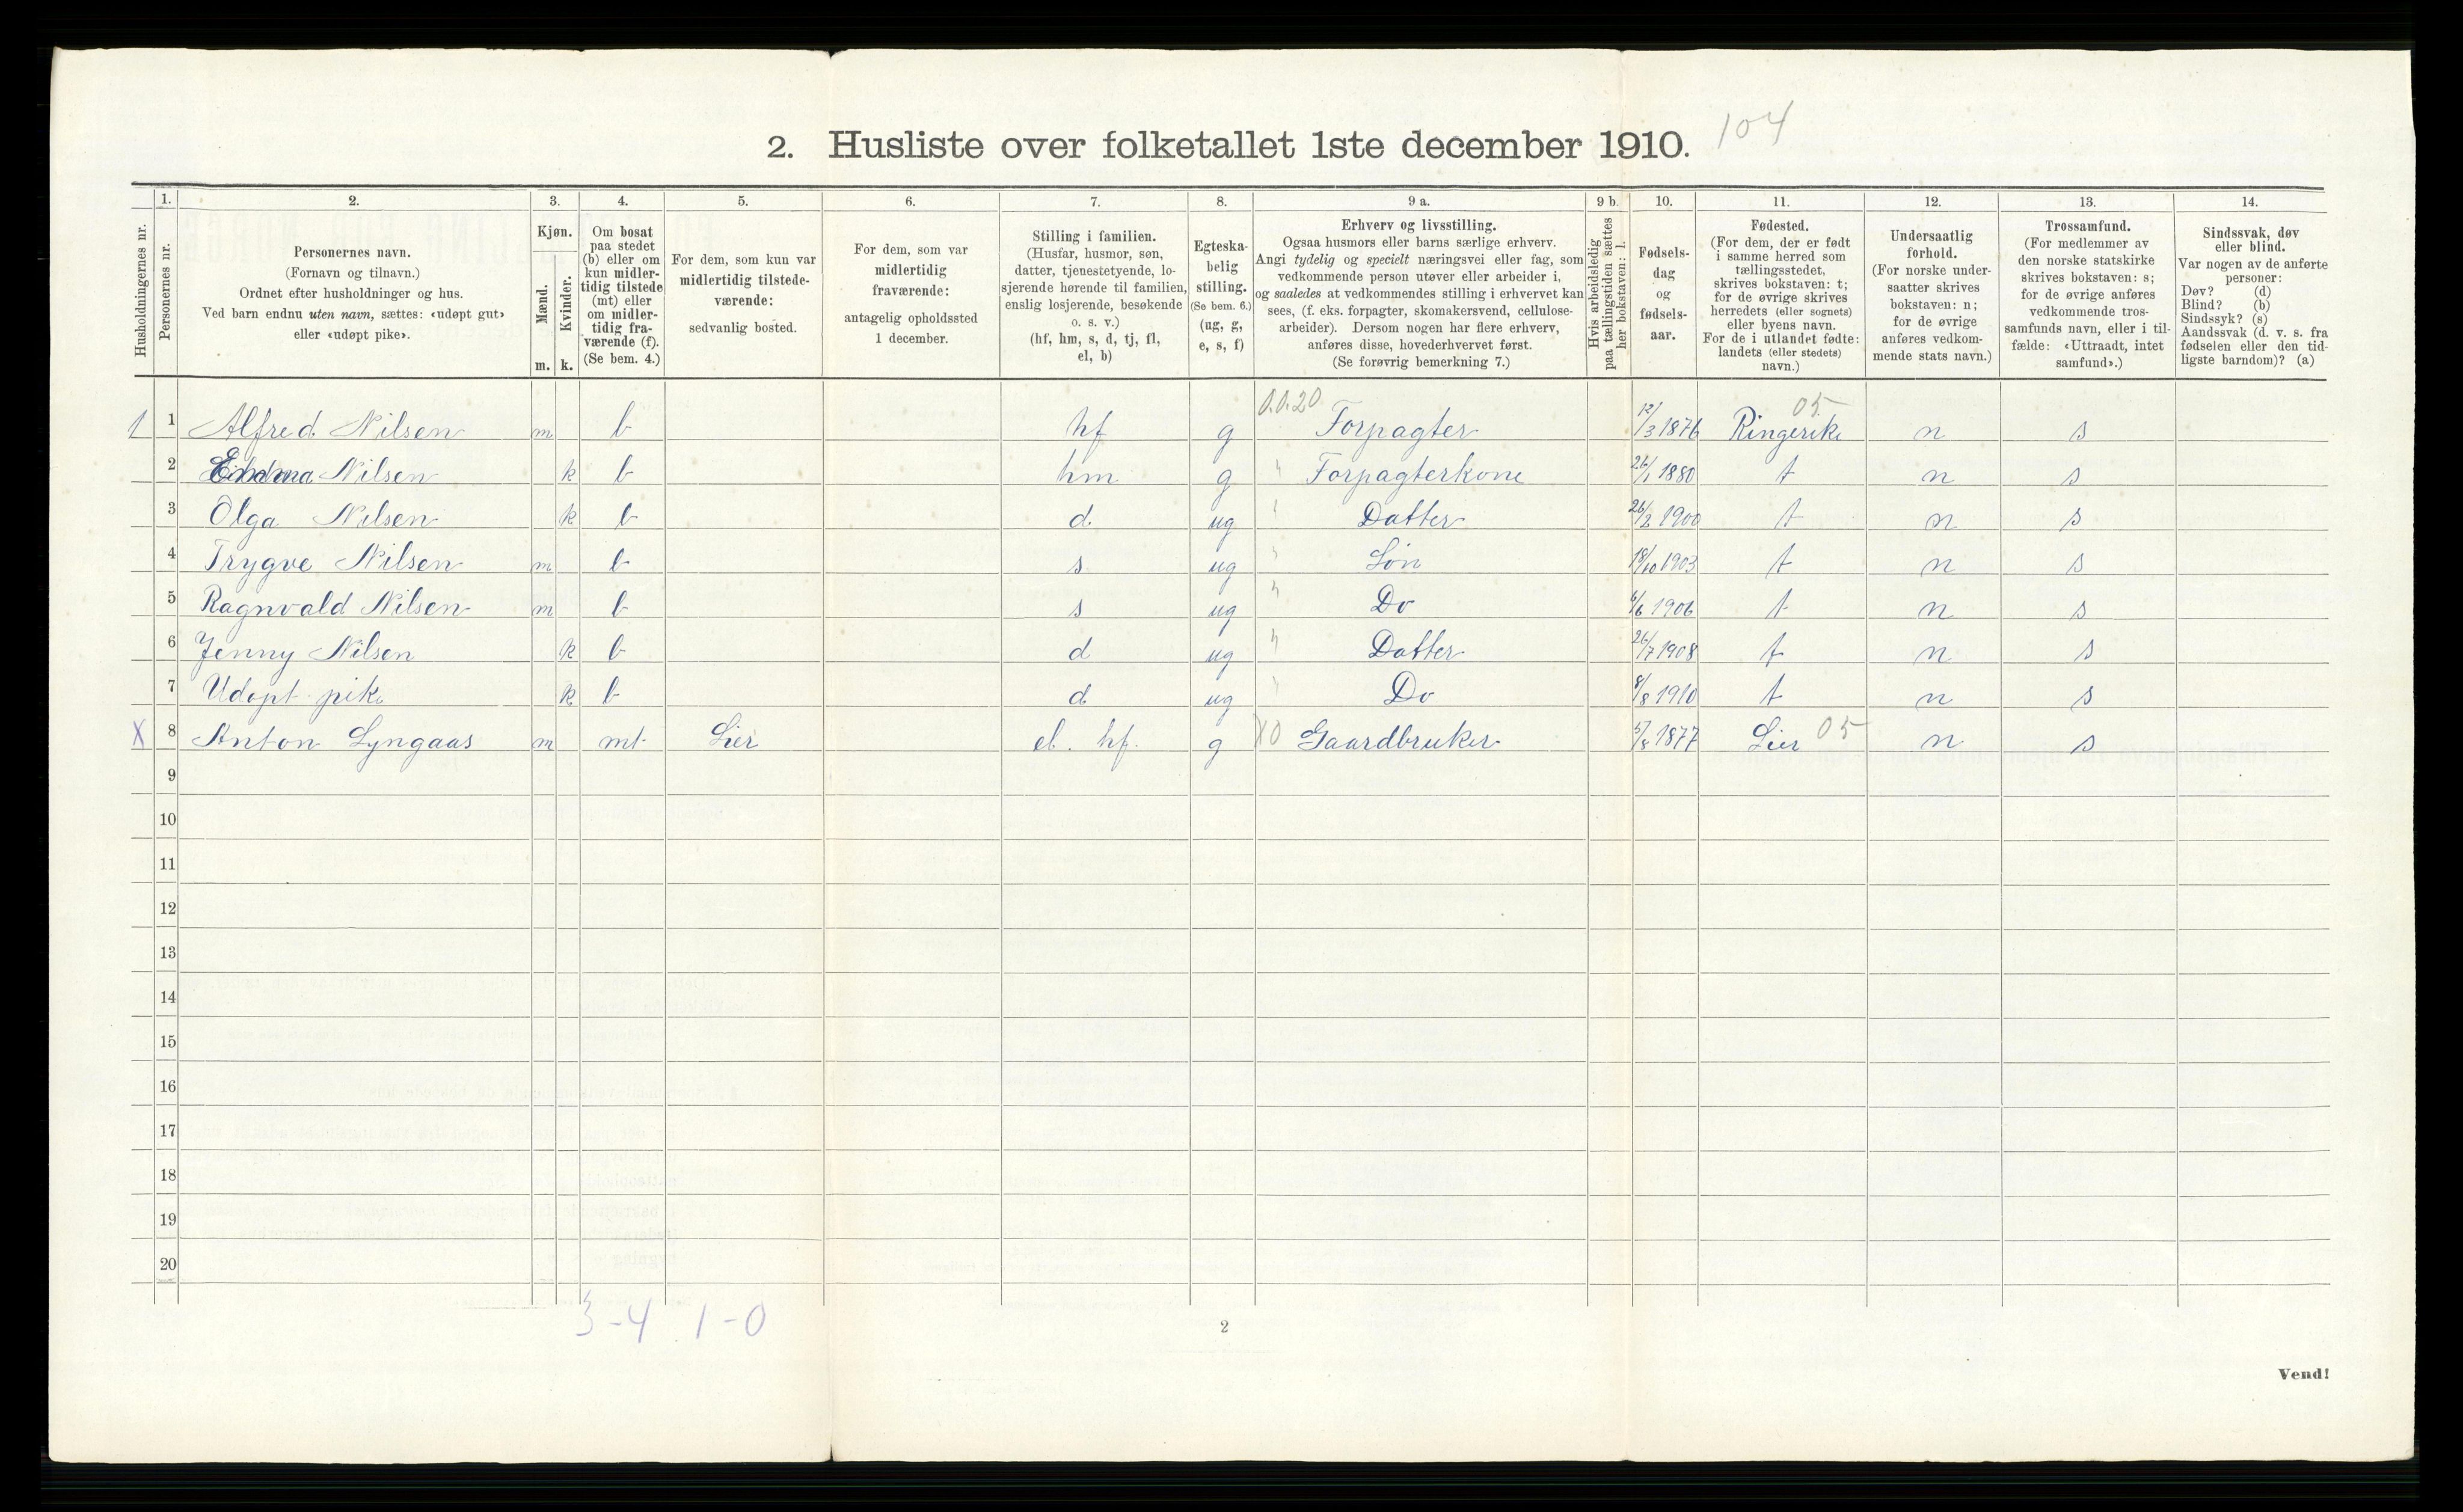 2. Husliste over folketallet 1ste december 1910. 104
Husholdningernes nr.
1.
Personernes nr.
2.
Personernes navn.
(Fornavn og tilnavn.)
Ordnet efter husholdninger og hus.
Ved barn endnu uten navn, sættes: «udøpt gut»
eller «udøpt pike».
3.
Kjøn.
Mænd.
Kvinder.
m. k.
4.
Om bosat
paa stedet
(b) eller om
kun midler-
tidig tilstede
(mt) eller
om midler-
tidig fra-
værende (f).
(Se bem. 4.)
5.
For dem, som kun var
midlertidig tilstede-
værende:
sedvanlig bosted.
6.
For dem, som var
midlertidig
fraværende:
antagelig opholdssted
1 december.
7.
Stilling i familien.
(Husfar, husmor, søn,
datter, tjenestetyende, lo-
sjerende hørende til familien,
enslig losjerende, besøkende
o. s. v.)
(hf, hm, s, d, tj, fl,
el, b)
8.
Egteska-
belig
stilling.
(Se bem. 6.)
(ug, g,
e, s, f)
9 a.
Erhverv og livsstilling.
Ogsaa husmors eller barns særlige erhverv.
Angi tydelig og specielt næringsvei eller fag, som
vedkommende person utøver eller arbeider i,
og saaledes at vedkommendes stilling i erhvervet kan
sees, (f. eks. forpagter, skomakersvend, cellulose-
arbeider). Dersom nogen har flere erhverv,
anføres disse, hovederhvervet først.
(Se forøvrig bemerkning 7.)
9 b.
Hvis arbeidsledig
paa tællingstiden sættes
her bokstaven: l.
10.
Fødsels-
dag
og
fødsels-
aar.
11.
Fødested.
(For dem, der er født
i samme herred som
tællingsstedet,
skrives bokstaven: t;
for de øvrige skrives
herredets (eller sognets)
eller byens navn.
For de i utlandet fødte:
landets (eller stedets)
navn.)
12.
Undersaatlig
forhold.
(For norske under-
saatter skrives
bokstaven: n;
for de øvrige
anføres vedkom-
mende stats navn.)
13.
Trossamfund.
(For medlemmer av
den norske statskirke
skrives bokstaven: s;
for de øvrige anføres
vedkommende tros-
samfunds navn, eller i til-
fælde: «Uttraadt, intet
samfund».)
14.
Sindssvak, døv
eller blind.
Var nogen av de anførte
personer:
Døv? (d)
Blind? (b)
Sindssyk? (s)
Aandssvak (d. v. s. fra
fødselen eller den tid-
ligste barndom)? (a)
0.0.20 05
1 1 Alfred Nilsen m b hf g Forpagter 12/3 1876 Ringerike n s
2 Nilsen k b hm g " Forpagterkone 26/1 1880 t n s
3 Olga Nilsen k b d ug " Datter 26/2 1900 t n s
4 Trygve Nilsen m b s ug " Søn 18/10 1903 t n s
5 Ragnvald Nilsen m b s ug " Do 6/6 1906 t n s
6 Jenny Nilsen k b d ug " Datter 26/7 1908 t n s
7 Udøpt pike k b d ug " Do 8/8 1910 t n s
X 8 Anton Lyngaas m mt Lier el. hf. g X0 Gaardbruker 5/8 1877 Lier 05 n s
9
10
11
12
13
14
15
16
17
18
19
20
3-4 1-0
2
Vend!